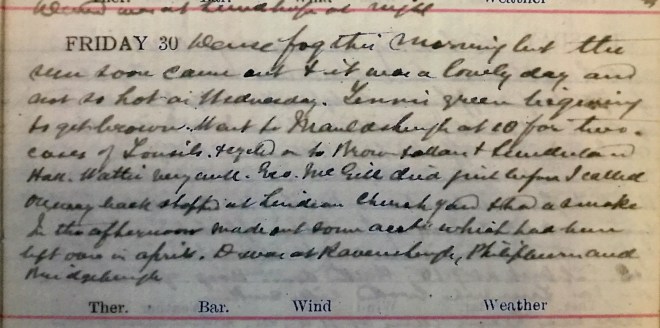 Ther. Bar. Wind Weather
at at night
FRIDAY 30 Dense fog this morning but the
sun soon came out & it was a lovely day and
not so hot as Wednesday. Tennis green beginning
to get brown. Went to at 10 for two
cases of Tonsils. & cycled on to &
Hall. very well. Geo. McGill died just before I called
On way back stopped at Lindean Church yard & had a smoke
In the afternoon made out some accts which had been
left over in April. D was at Ravensheugh, Philipburn and
Bridgeheugh
Ther. Bar. Wind Weather